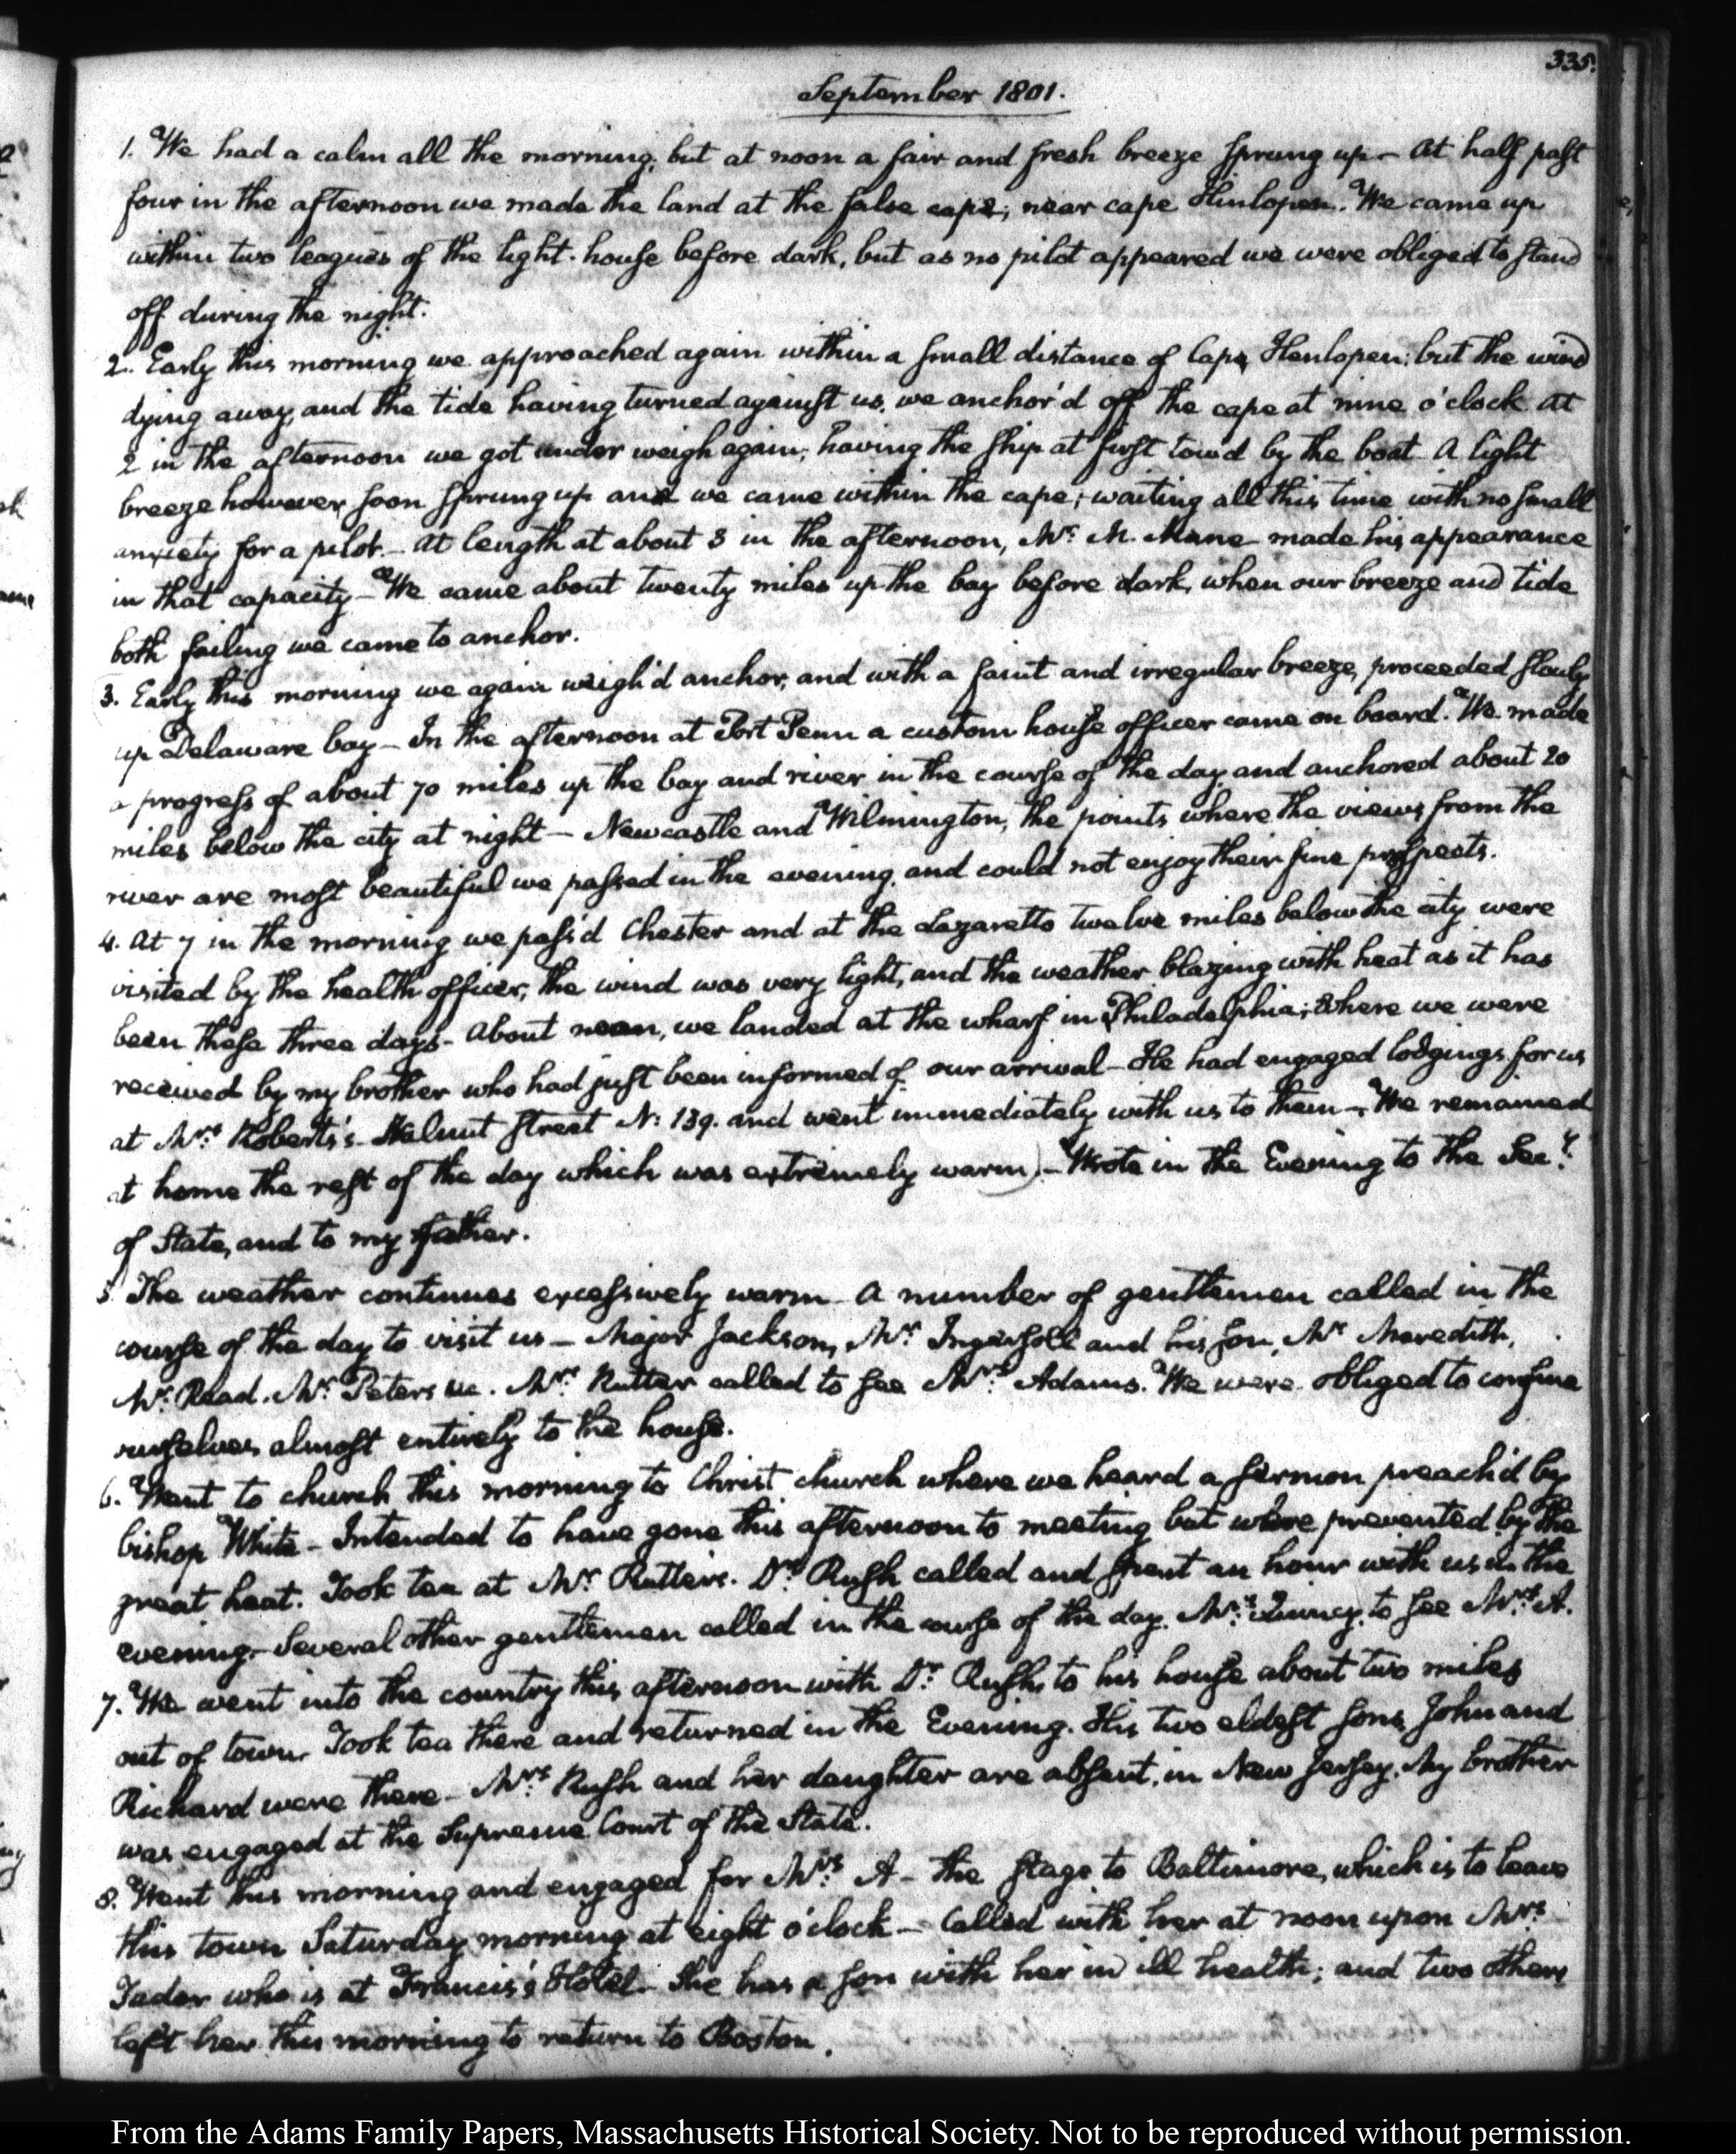 335.
September 1801.
1. We had a calm all the morning, but at noon a fair and fresh breeze sprung up — At half past
four in the afternoon we made the land at the false cape, near cape Hinlopen. We came up
within two leagues of the light-house before dark, but as no pilot appeared we were obliged to stand
off during the night.
2. Early this morning we approached again within a small distance of Cape Henlopen: but the wind
dying away, and the tide having turned against us, we anchor'd off the cape at nine o'clock. At
2 in the afternoon we got under weigh again, having the ship at first tow'd by the boat. A light
breeze however, soon sprung up and we came within the cape; waiting all this time with no small
anxiety for a pilot. — At length at about 3 in the afternoon, Mr. M. Mune made his appearance
in that capacity — We came about twenty miles up the bay before dark, when our breeze and tide
both failing we came to anchor.
3. Early this morning we again weigh'd anchor, and with a faint and irregular breeze, proceeded slowly
up Delaware bay — In the afternoon at Port Penn a custom house officer came on board. We made
a progress of about 70 miles up the bay and river in the course of the day and anchored about 20
miles below the city at night — Newcastle and Wilmington, the points where the views from the
river are most beautiful we passed in the evening, and could not enjoy their fine prospects.
4. At 7 in the morning we pass'd Chester and at the Lazaretto twelve miles below the city were
visited by the health officer; the wind was very light, and the weather blazing with heat as it has
been these three days - About noon, we landed at the wharf in Philadelphia; where we were
received by my brother who had just been informed of our arrival — He had engaged lodgings for us
at Mrs. Roberts's Walnut Street N: 139. and went immediately with us to them — We remained
at home the rest of the day which was extremely warm — Wrote in the Evening to the Secy.
of State, and to my father.
5. The weather continues excessively warm — A number of gentlemen called in the
course of the day to visit us — Major Jackson, Mr. Ingersoll and his son, Mr. Meredith,
Mr. Read. Mr. Peters &c. Mrs. Rutter called to see Mrs. Adams. We were obliged to confine
ourselves almost entirely to the house.
6. Went to church this morning to Christ church where we heard a sermon preach'd by
bishop White — Intended to have gone this afternoon to meeting but were prevented by the
great heat. Took tea at Mr. Rutter's. Dr. Rush called and spent an hour with us in the
evening — Several other gentlemen called in the course of the day. Mrs. Quincy, to see Mrs. A.
7. We went into the country this afternoon with Dr. Rush, to his house about two miles
out of town. Took tea there and returned in the Evening. His two eldest sons, John and
Richard were there — Mrs. Rush and her daughter are absent, in New Jersey. My brother
was engaged at the Supreme Court of the State.
8. Went this morning and engaged for Mrs. A — the stage to Baltimore, which is to leave
this town Saturday morning at eight o'clock — Called with her at noon upon Mrs.
Tudor who is at Francis's Hotel. — She has a son with her in ill health; and two others
left her this morning to return to Boston.
From the Adams Family Papers, Massachusetts Historical Society. Not to be reproduced without permission.